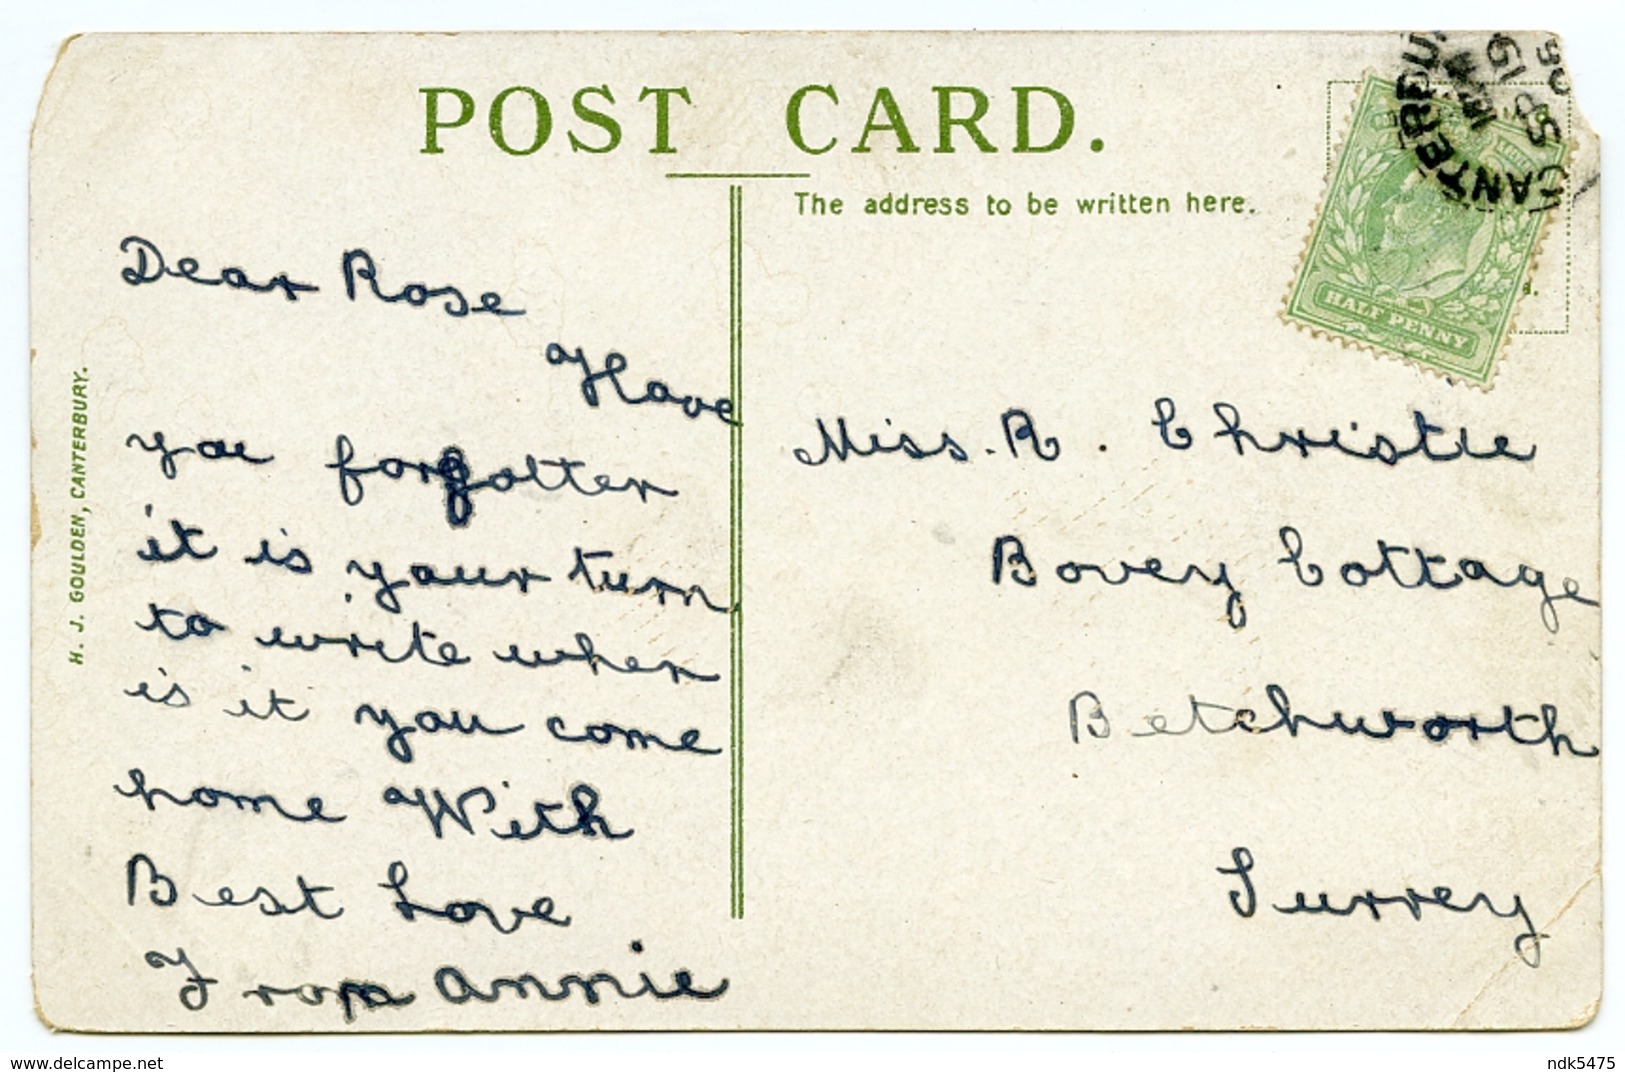 POST CARD.
The address to be written here.
CANTERBU
HALF PENNY
H. J. GOULDEN, CANTERBURY.
Dear Rose
Have
you forgotten
it is your turn
to write when
is it you come
home With
Best Love
From Annie
Miss. R. Christie
Bovey Cottage
Betchworth
Surrey
delcampe.net
ndk5475